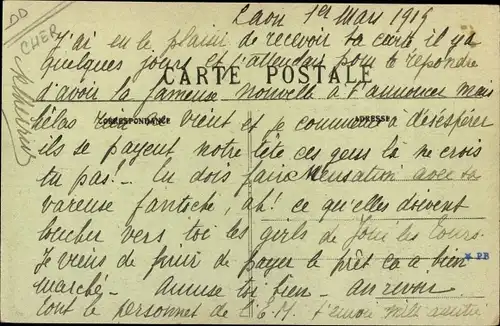 DD
CHER
Laon 1er Mars 1919
J'ai eu le plaisir de recevoir ta carte il y a
quelques jours et j'attendais pour te répondre
CARTE POSTALE
d'avoir la fameuse nouvelle à t'annoncer mais
hélas rien vient et je commence à désespérer
CORRESPONDANCE
ADRESSE
ils se payent notre tête ces gens là ne crois
tu pas! - Tu dois faire sensation avec ta
vareuse fantoche, ah! ce qu'elles doivent
loucher vers toi les girls de Joué les Tours.
Je viens de finir de payer le prêt ça a bien
* PB
marché - Amuse toi bien - au revoir
tout le personnel de l'E.M. t'envoie mille